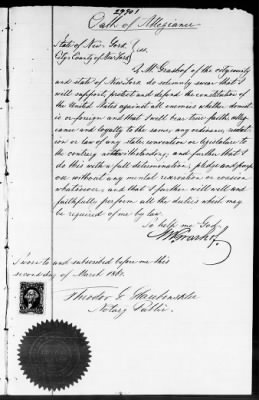 29901
Oath of Allegiance
State of New York
City & County of New York } ss.
I, M. Grashof of the city county
and state of New York do solemnly swear that I
will support, protect and defend the constitution of
the United States against all enemies whether domest-
ic or foreign and that I will bear true faith, allegi-
ance and loyalty to the same, any ordinance, resolut-
ion or law of any state convention or legislature to
the contrary notwithstanding, and further that I
do this with a full determination, pledge and purp-
ose without any mental reservation or evasion
whatsoever, and that I further will well and
faithfully perform all the duties which may
be required of me by law.
So help me God.
M Grashof.
Sworn to and subscribed before me this
second day of March 186
Theodor
Notary Public.